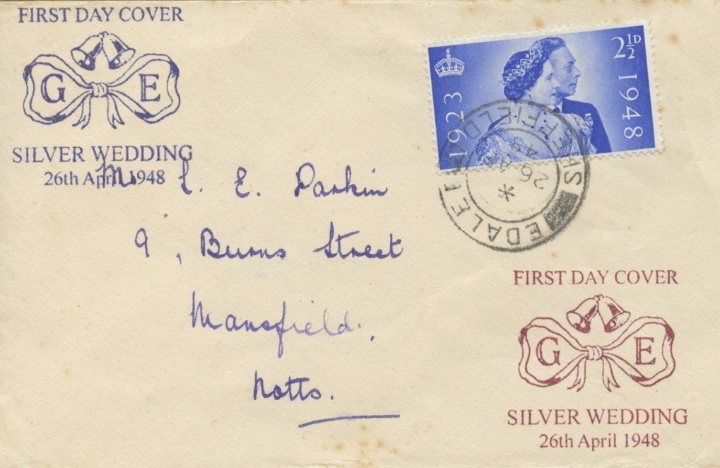 FIRST DAY COVER
G E
SILVER WEDDING
26th April 1948
2½D
1923
1948
EDALE
SHEFFIELD
*
26 AP
48
Mr L. E. Parkin
9, Burns Street
Mansfield,
Notts.
FIRST DAY COVER
G E
SILVER WEDDING
26th April 1948